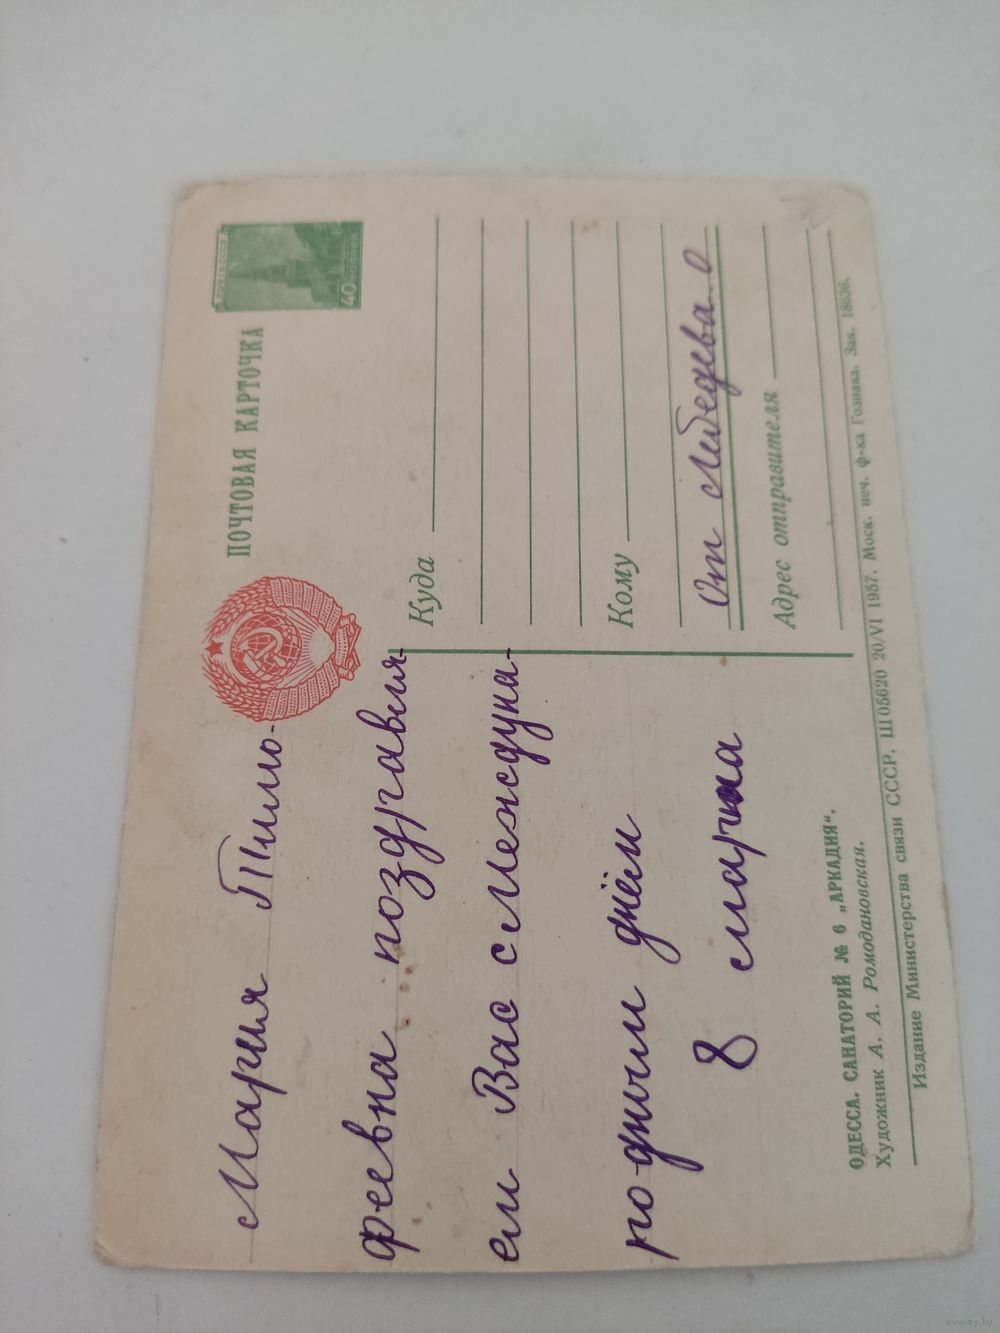 ПОЧТОВАЯ КАРТОЧКА
ПОЧТА СССР
40 КОПЕЕК
Мария Тимо-
феевна поздравля-
ем Вас с Междуна-
родным днём
8 марта
Куда
Кому
От Лебедева О
Адрес отправителя
ОДЕССА. САНАТОРИЙ № 6 „АРКАДИЯ“.
Художник А. А. Ромодановская.
Издание Министерства связи СССР. Ш 05620 20/VI 1957. Моск. печ. ф-ка Гознака. Зак. 18636.
www.ay.by